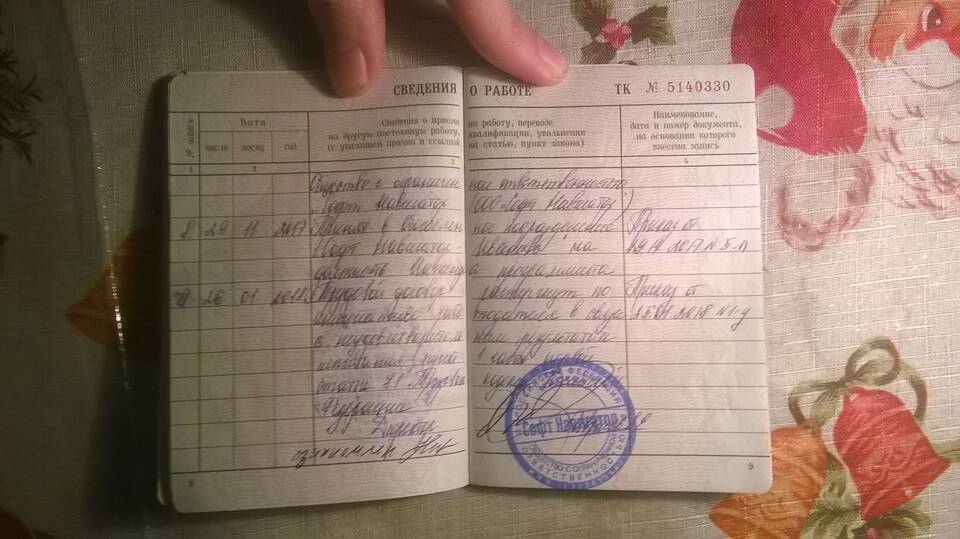 СВЕДЕНИЯ О РАБОТЕ
ТК № 5140330
№ записи
Дата
число
месяц
год
Сведения о приеме на работу, переводе
на другую постоянную работу, квалификации, увольнении
(с указанием причин и ссылкой на статью, пункт закона)
Наименование,
дата и номер документа,
на основании которого
внесена запись
1 2 3 4
Общество с ограниченной ответственностью
"Софт Навигатор" (ООО "Софт Навигатор")
8 29 11 2017 Принят в Обособленное подразделение Приказ от
"Софт Навигатор-Иваново" на 29.11.2017 № 5-п
должность инженера программиста
9 26 01 2018 Трудовой договор расторгнут по Приказ от
инициативе работодателя в связи 25.01.2018 № 1-у
с неудовлетворительным результатом
испытания, часть первая
статьи 71 Трудового кодекса Российской
Федерации
Директор
Софт Навигатор
ОТВЕТСТВЕННОСТЬЮ
8
9